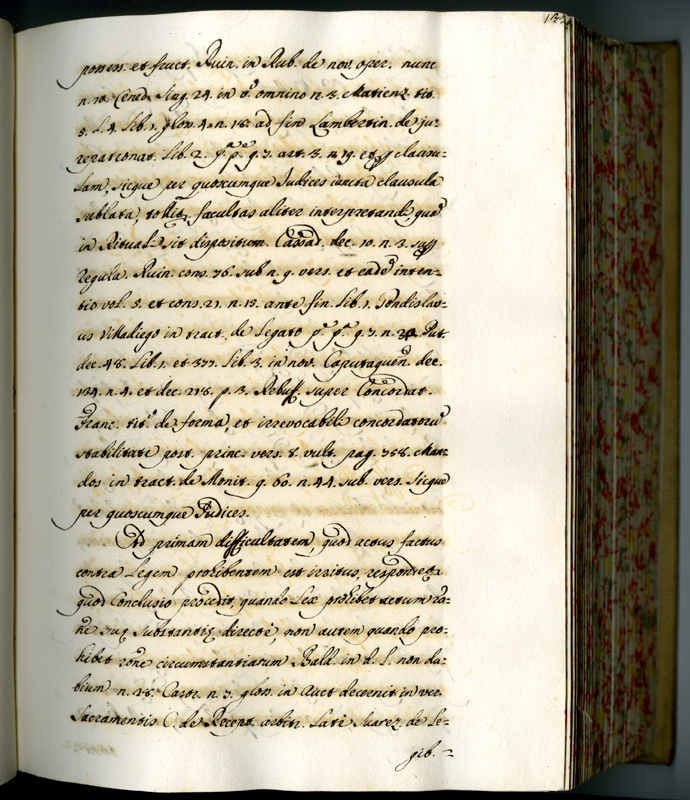 possess. et fruct. Ruin. in Rub. de nov. oper. nunc
n. 10. Cened. Sing. 24. in v.º omnino n. 3. Matienz. tit.
5. L. 4. Lib. 1. glos. 4. n. 18. ad fin Lambertin. de ju=
repatronat. Lib. 2. p.ª p.e q. 7. art. 3. n. 19. et clausu=
lam, sicque per quoscumque Judices iuncta clausula
sublata, facultas aliter interpretandi, quod
in Rituali sit dispositum. Cassad. dec. 10. n. 3. sup
regula. Ruin. cons. 76. sub n. 9. vers. et eadẽ inten=
tio vol. 5. et cons. 21. n. 13. ante fin. Lib. 1. Gondislau=
us Villadiego in tract. de Legato p.e p.e q. 7. n. Put.
dec. 48. Lib. 1. et 377. Lib. 3. in nov. Caputaquen. dec.
134. n. 4. et dec. 218. p. 3. Rebuff. super Concordat.
Franc. tit.º de forma, et irrevocabili concordatorũ
stabilitate post. princ. vers. 8. vult. pag. 358. Man=
dos in tract. de Monit. q. 60. n. 44. sub. vers. Sicque
per quoscumque Judices.
Ad primam difficultatem, quod actus factus
contra Legem prohibentem est irritus, respondetur
quod Conclusio procedit, quando Lex prohibet actum ra=
ñe suę substantię directè, non autem quando pro=
hibet rõne circumstantiarum Bald. in d. L. non du=
bium n. 28. Castr. n. 3. glos. in Auct decernit in ver.
Sacramentis C. de Recept. arbitr. Latè Suarez de Le=
gib. =